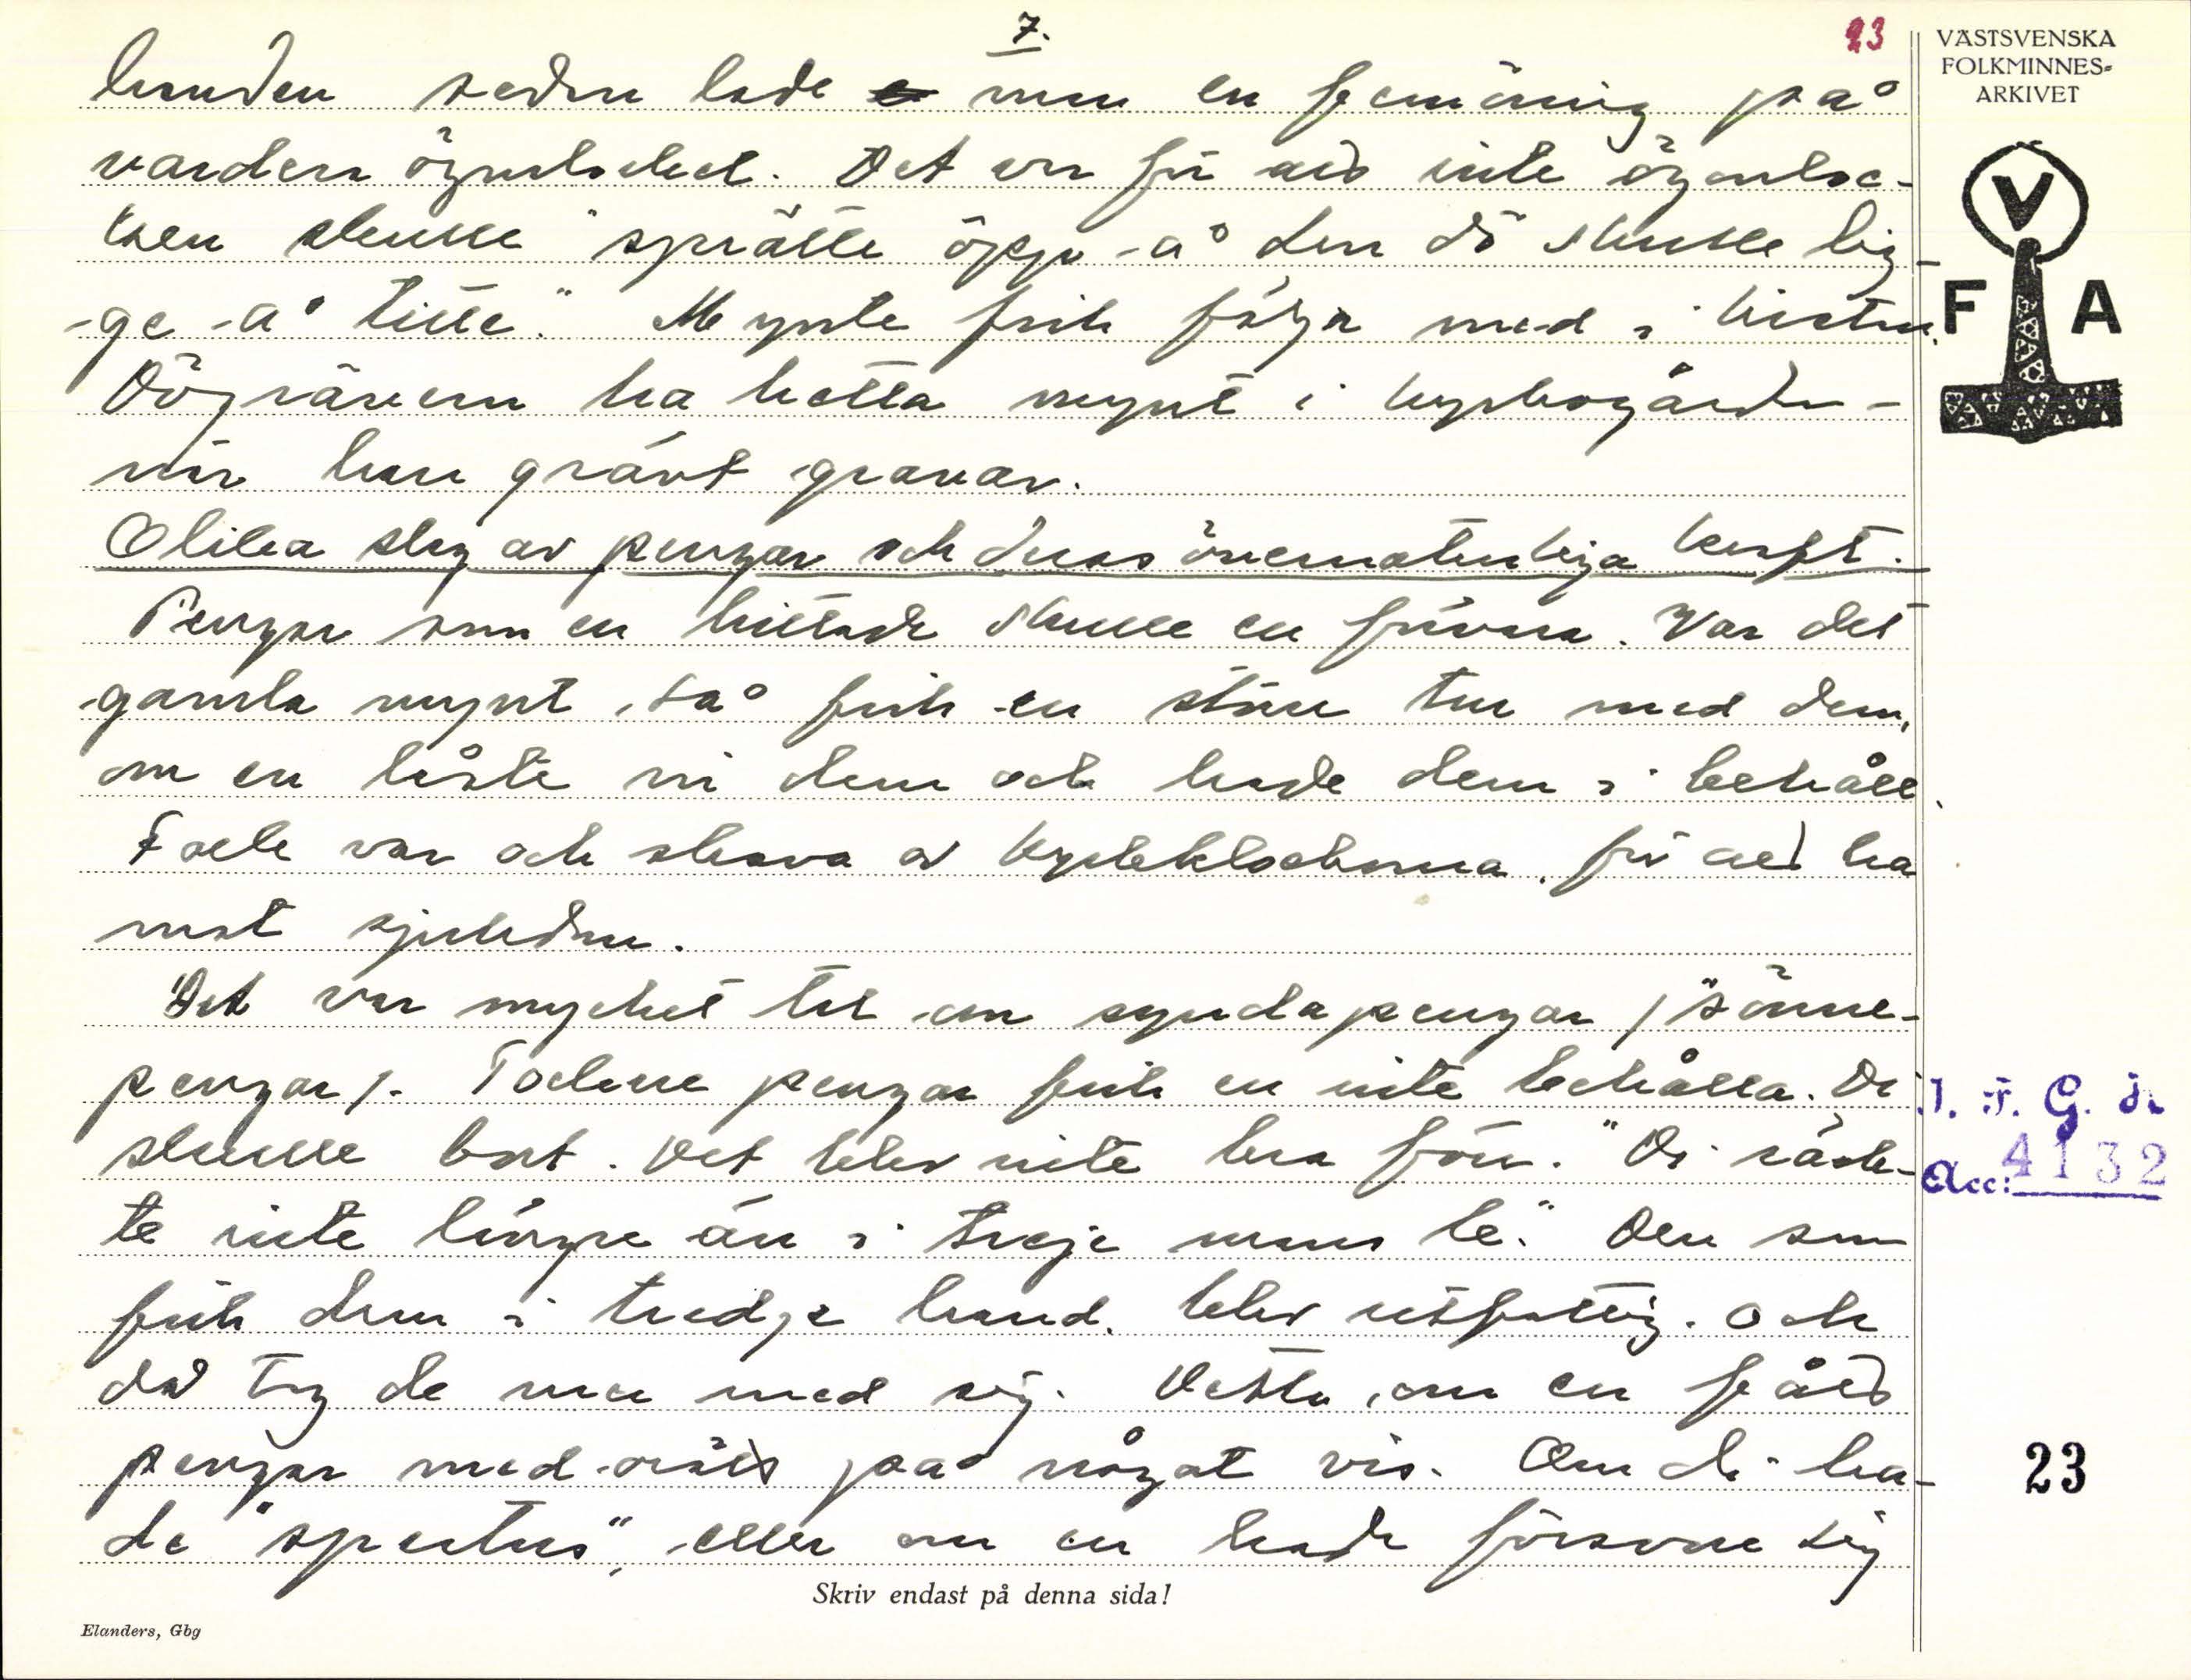 7.
23
VÄSTSVENSKA
FOLKMINNES-
ARKIVET
V
F A
handen sedan lade man en femöring på
vardera ögnalocket. Det var för att inte ögonloc-
ken skulle "sprätte öpp å den dö skulle lig-
ge å titte". Mynte fick följa med i kistan.
Dögrävern ha hetta mynt i kyrkogården -
när han grävt gravar.
Olika slag av pengar och deras övernaturliga kraft.
Pengar som en hittade skulle en förvara. Var det
gamla mynt, så fick en större tur med dem,
om en läste ni dem och hade dem i behåll.
Folk var och skava av kyrkklockorna för att ha
mot sjukdom.
Det var mycket tal om syndapengar /"sönne-
pengar/. Tockna pengar fick en inte behålla. De
skulle bort. Det blev inte bra förr. "Di räck-
te inte längre än i treje mans le". Den som
fick dem i tredje hand, blev utfattig. Och
då tog de mer med sig. Detta, om en fått
pengar med orätt på något vis. Om di ha-
de "spertus", eller om en hade försvure sig
I. F. G. nr
Acc: 4132
23
Skriv endast på denna sida!
Elanders, Gbg